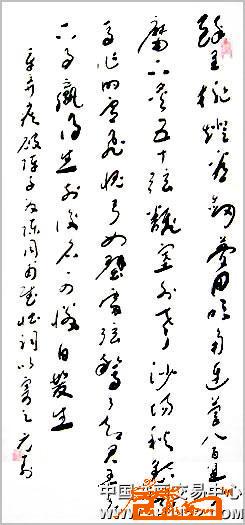 醉里挑灯看剑梦回吹角连营八百里分
麾下炙五十弦翻塞外声沙场秋点兵
马作的卢飞快弓如霹雳弦惊了却君王天
下事赢得生前身后名可怜白发生
辛弃疾破阵子为陈同甫赋壮词以寄之
中国书画交易中心